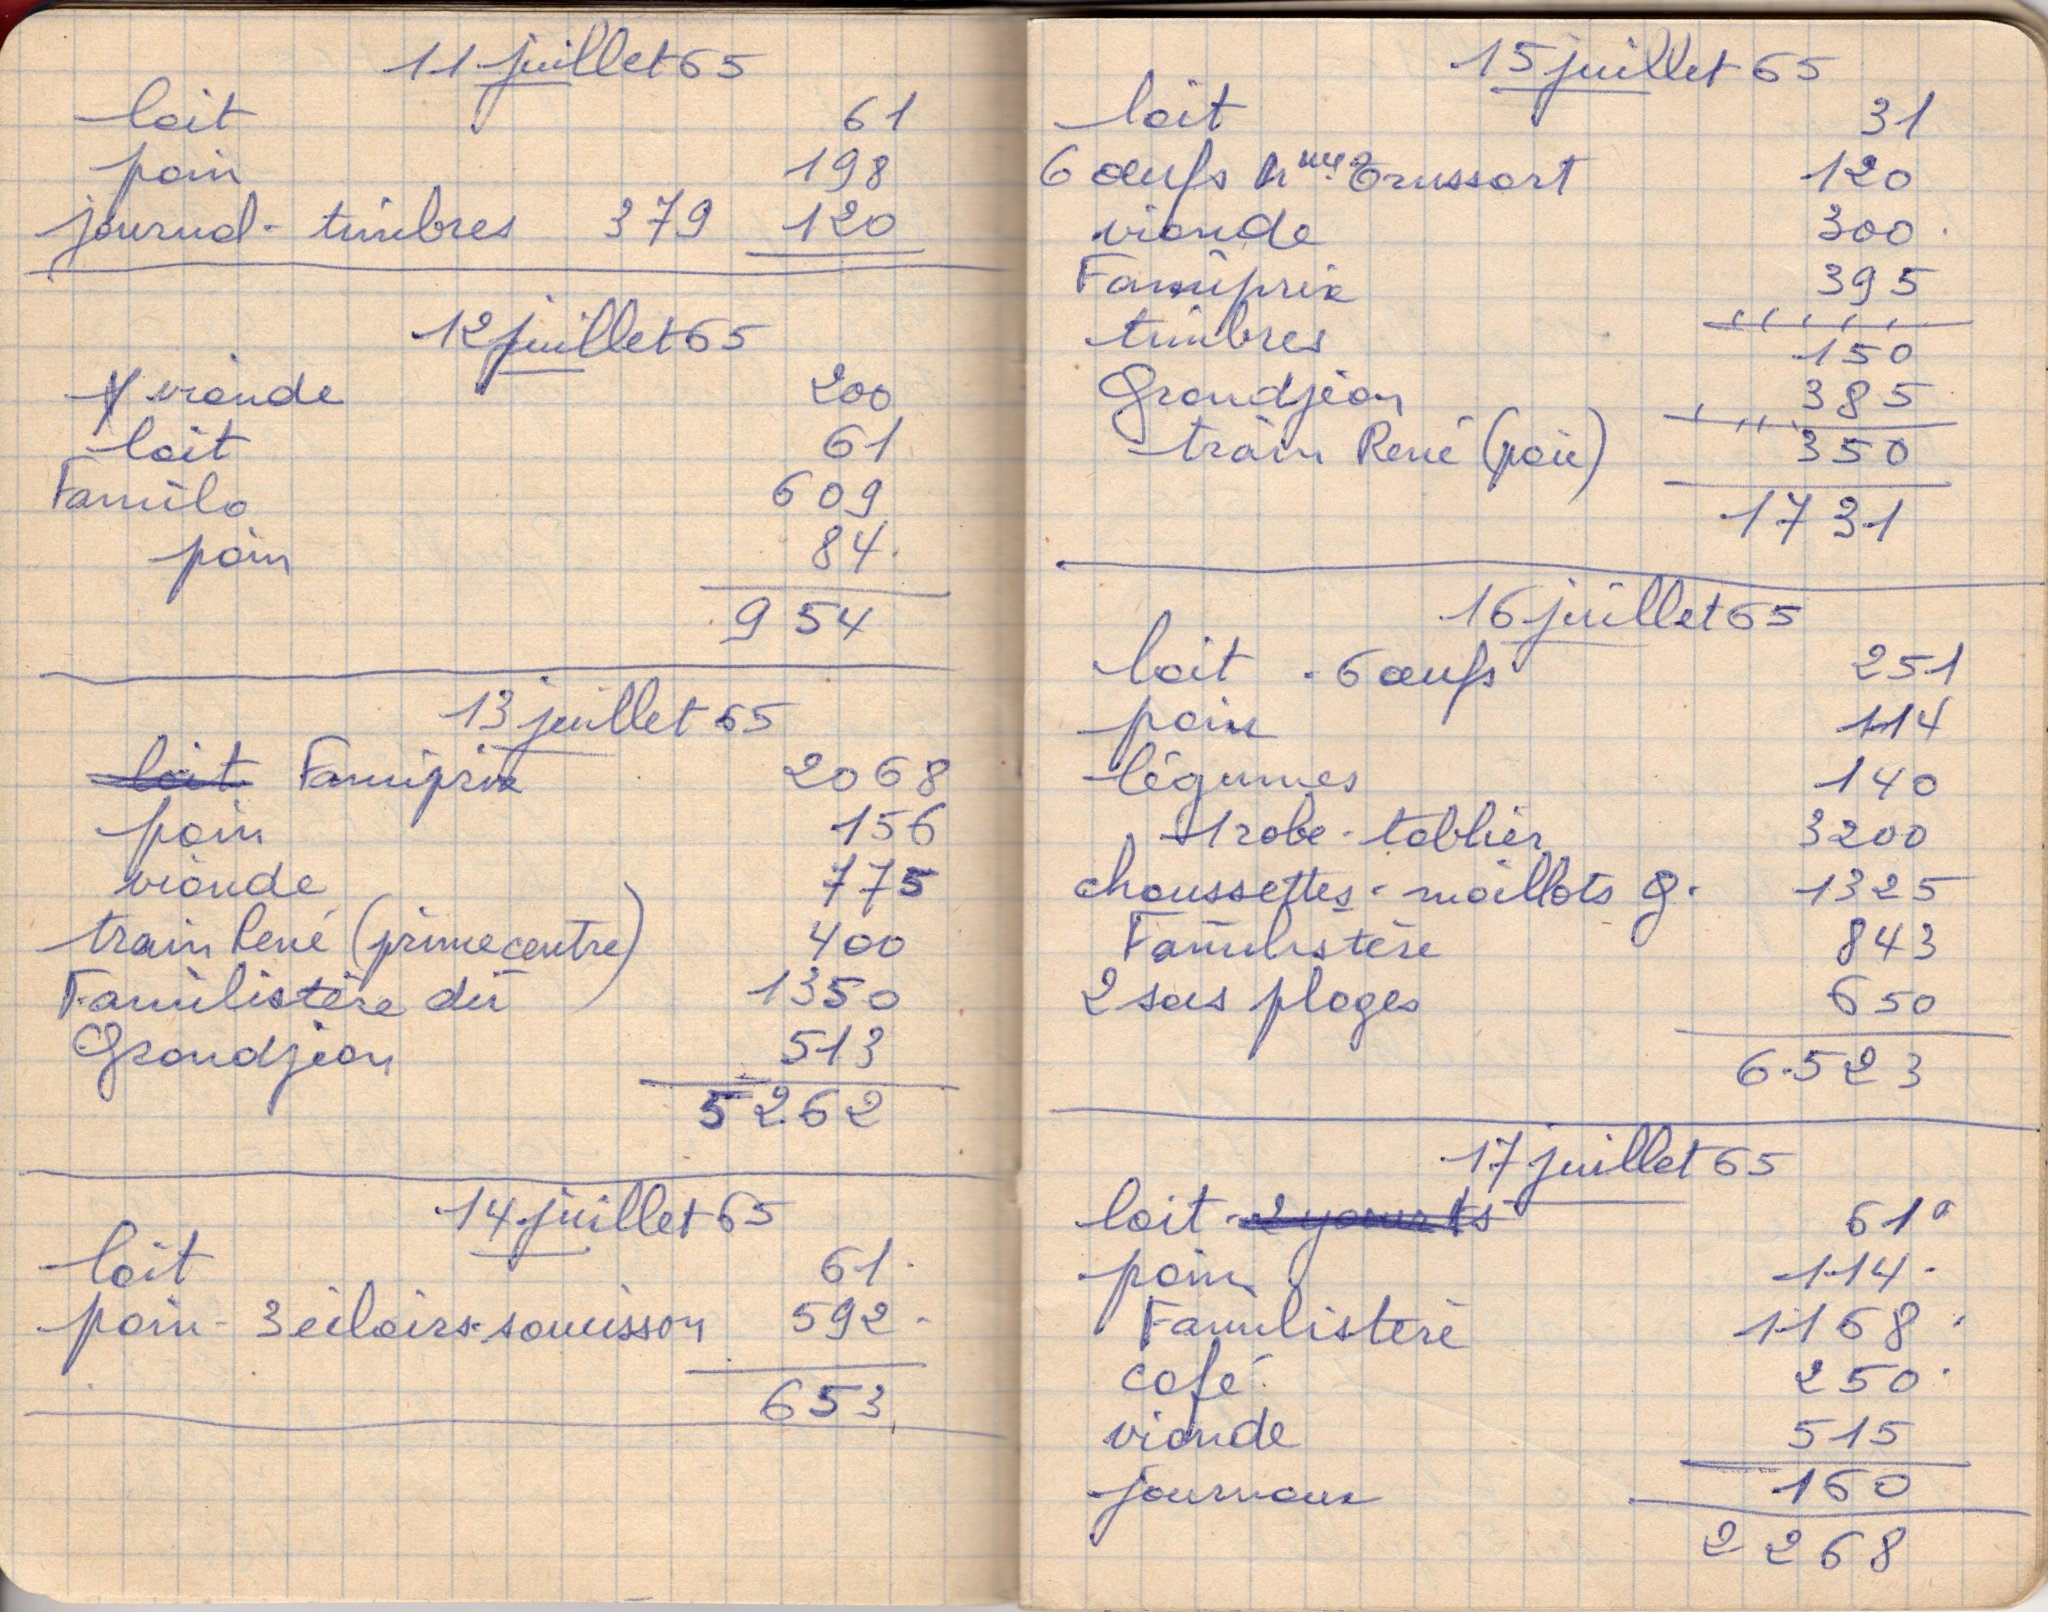 11 juillet 65
lait 61
pain 198
journal - timbres 379 120
12 juillet 65
viande 200
lait 61
Familo 609
pain 84.
954
13 juillet 65
lait Famiprix 2068
pain 156
viande 775
train René (prime centre) 400
Familistère dû 1350
Grandjean 513
5262
14 juillet 65
lait 61.
pain - 3 éclairs - saucisson 592.
653
15 juillet 65
lait 31
6 œufs Mme Trussart 120
viande 300.
Famiprix 395
timbres 150
Grandjean 385
train René (paie) 350
1731
16 juillet 65
lait - 6 œufs 251
pain 114
légumes 140
1 robe - tablier 3200
chaussettes - maillots g. 1325
Familistère 843
2 sacs plages 650
6.523
17 juillet 65
lait - 2 yaourts 61
pain 114.
Familistère 1168.
café 250.
viande 515
journaux 160
2268